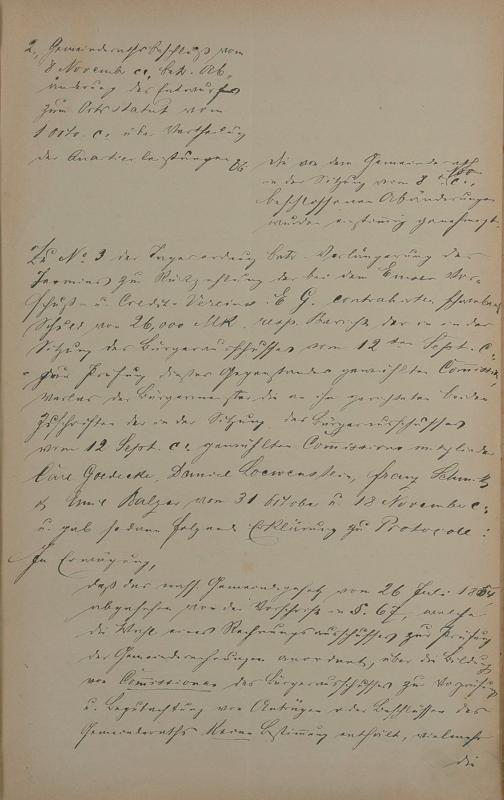 2, Gemeinderathsbeschluß vom
8 November c., betr. Ab-
änderung des Entwurfs
zum Ortsstatut vom
1 Octo. c. über Vertheilung
der Quartierleistungen
Die von dem Gemeinderath
in der Sitzung vom 8 c.,
beschlossenen Abänderungen
wurden einstimmig genehmigt.
Zu No. 3 der Tagesordnung betr. Verlängerung des
Termins zur Rückzahlung der bei dem Emser Vor-
schuß- u. Credit-Vereine E. G. contrahirten schwebenden
Schuld von 26,000 Mk. resp. Bericht der in der
Sitzung des Bürgerausschusses vom 12ten Sept. c.
zur Prüfung dieses Gegenstandes gewählten Commission,
verlas der Bürgermeister die an ihn gerichteten beiden
Zuschriften der in der Sitzung des Bürgerausschusses
vom 12 Sept. c. gewählten Commissionsmitglieder
Carl Goedecke, Daniel Loewenstein, Franz Schmitt
& Emil Balzer vom 31 October u. 18 November c.
u. gab sodann folgende Erklärung zu Protocoll:
In Erwägung,
daß das nass. Gemeindegesetz vom 26 Juli 1854
abgesehen von der Vorschrift in §. 67, welche
die Wahl eines Rechnungsausschusses zur Prüfung
der Gemeinderechnungen anordnet, über die Bildung
von Commissionen des Bürgerausschusses zur Vorprüfung
u. Begutachtung von Anträgen oder Beschlüssen des
Gemeinderaths keine Bestimmung enthält, vielmehr
die